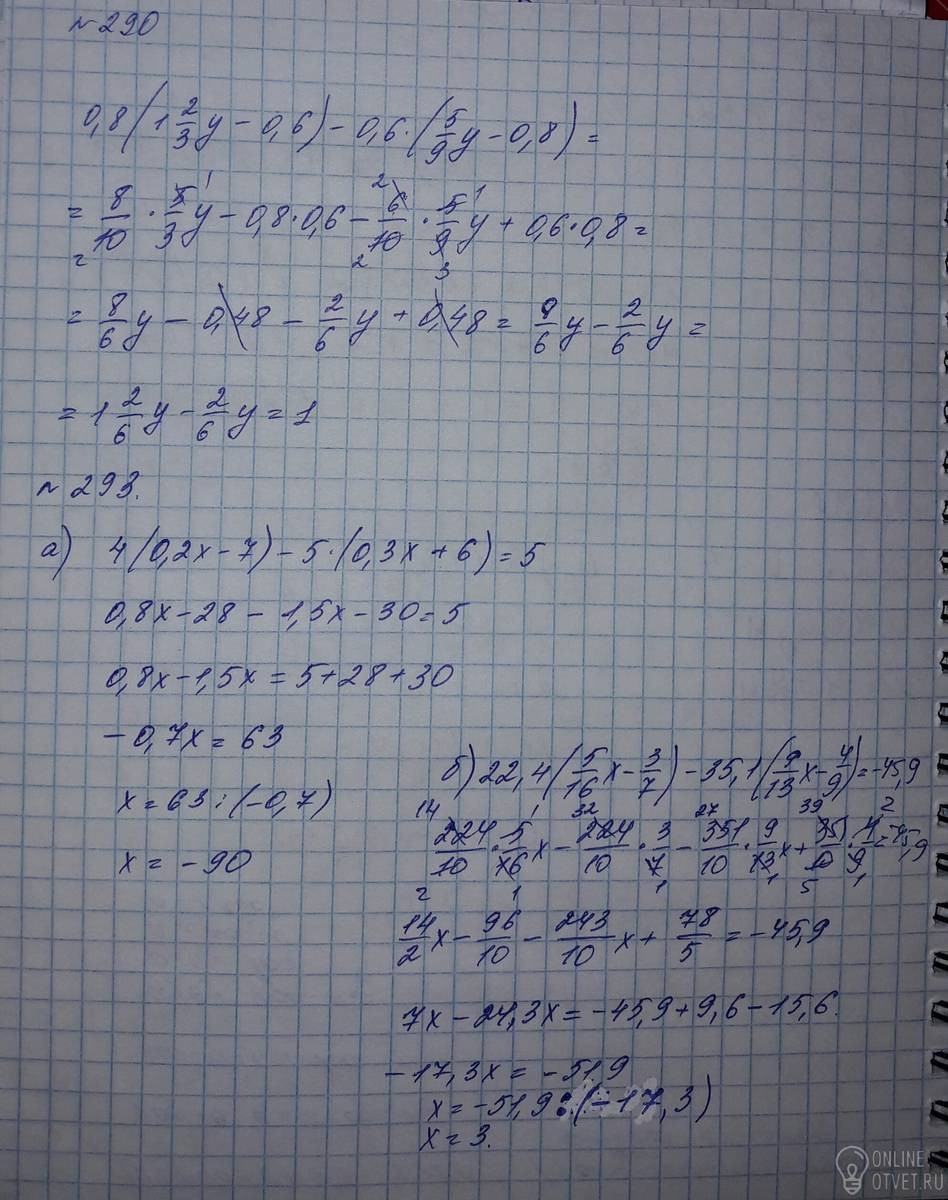 №290
0,8(1 2/3 y - 0,6) - 0,6·(5/9 y - 0,8) =
= 8/10 · 5/3 y - 0,8·0,6 - 6/10 · 5/9 y + 0,6·0,8 =
= 8/6 y - 0,48 - 2/6 y + 0,48 = 9/6 y - 2/6 y =
= 1 2/6 y - 2/6 y = 1
№293.
а) 4(0,2x - 7) - 5·(0,3x + 6) = 5
0,8x - 28 - 1,5x - 30 = 5
0,8x - 1,5x = 5 + 28 + 30
-0,7x = 63
x = 63 : (-0,7)
x = -90
б) 22,4(5/16 x - 3/7) - 35,1(9/13 x - 4/9) = -45,9
224/10 · 5/16 x - 224/10 · 3/7 - 351/10 · 9/13 x + 351/10 · 4/9 = -45,9
14/2 x - 96/10 - 243/10 x + 78/5 = -45,9
7x - 24,3x = -45,9 + 9,6 - 15,6.
-17,3x = -51,9
x = -51,9 : (-17,3)
x = 3.
ONLINE
OTVET.RU